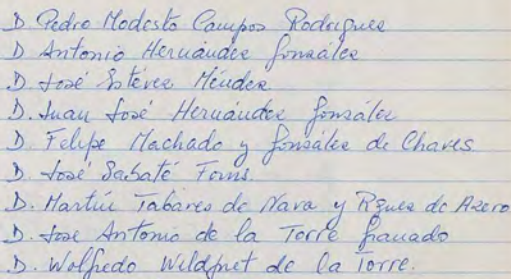 D. Pedro Modesto Campos Rodriguez
D. Antonio Hernández González
D. José Estévez Méndez
D. Juan José Hernández González
D. Felipe Machado y González de Chaves
D. José Sabaté Forns.
D. Martín Tabares de Nava y Rguez de Azero
D. José Antonio de la Torre Granado
D. Wolfredo Wildpret de la Torre.